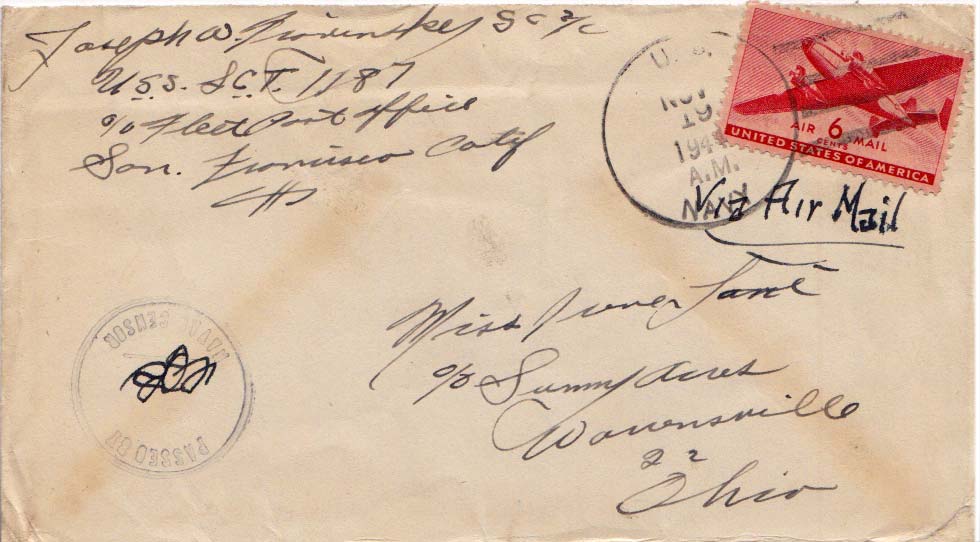 Joseph W.
U.S.S. LCT. 1187
c/o Fleet Post Office
San. Francisco Calif
U. S.
NOV
19
194
A.M.
NAVY
AIR 6 MAIL
CENTS
UNITED STATES OF AMERICA
Via Air Mail
Miss
c/o Sunny Acres
Warrensville
22
Ohio
NAVAL CENSOR
PASSED BY